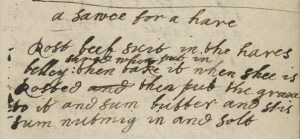 a sawce for a hare
Rost beef suit in the hares
shred when put in
belley then take it when shee is
Rosted and then put the gravee
to it and sum butter and stir
sum nutmig in and solt